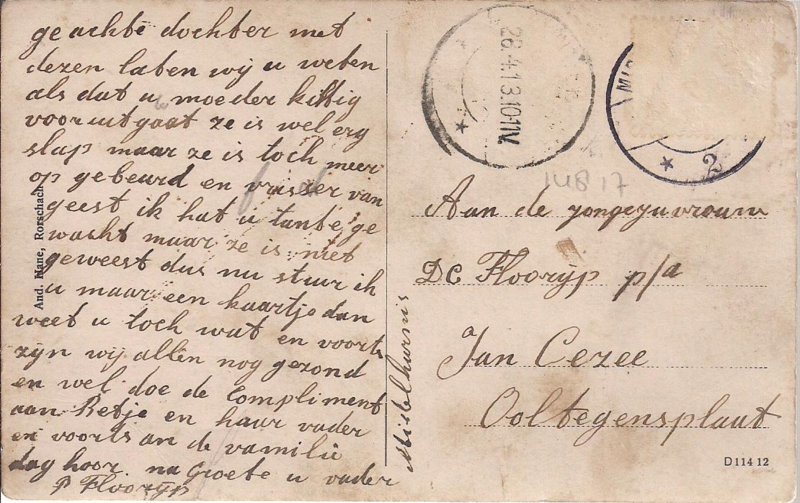 geachte dochter met
dezen laten wij u weten
als dat u moeder kittig
vooruitgaat ze is wel erg
slap maar ze is toch meer
op gebeurd en vriszer van
geest ik hat u tante ge
wacht maar ze is niet
geweest dus nu stuur ik
u maar een kaartje dan
weet u toch wat en voorts
zyn wij allen nog gezond
en wel doe de Compliment
aan Betje en haar vader
en voorts an de vamilie
dag hoor na Groete u vader
P Flooryp
And. Hane, Rorschach
Middelharnis
26.4.13.10-11V
MID
2
14817
Aan de jongejuvrouw
DC Flooryp p/a
Jan Cezee
Ooltegensplaat
D 114 12